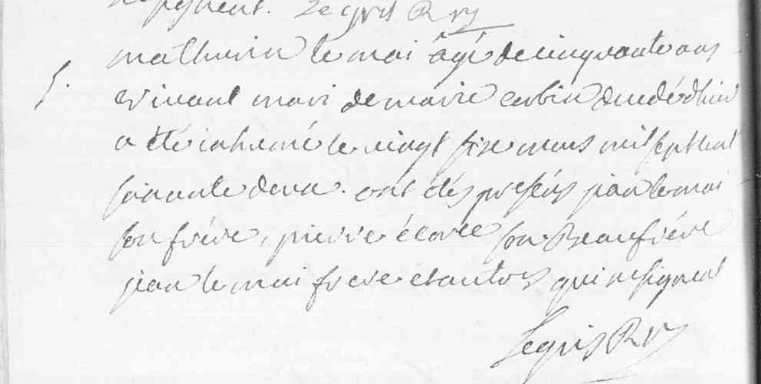 signent. Legris Rr
mathurin le mai âgé de cinquante ans
S. vivant mari de marie corbin décédé d'hier
a été inhumé le vingt six mars mil sept cent
soixante deux. ont étés presens jean le mai
son frère, pierre son Beaufrére
jean le mai frere et autres qui ne signent
Legris Rr